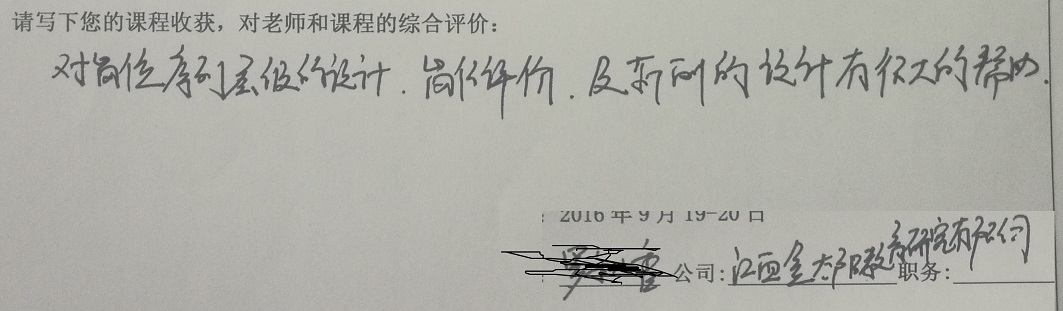 请写下您的课程收获，对老师和课程的综合评价：
对岗位序列层级的设计．岗位评价．及薪酬的设计有很大的帮助．
2016 年 9 月 19-20 日
公司：江西金太阳教育研究有限公司 职务：